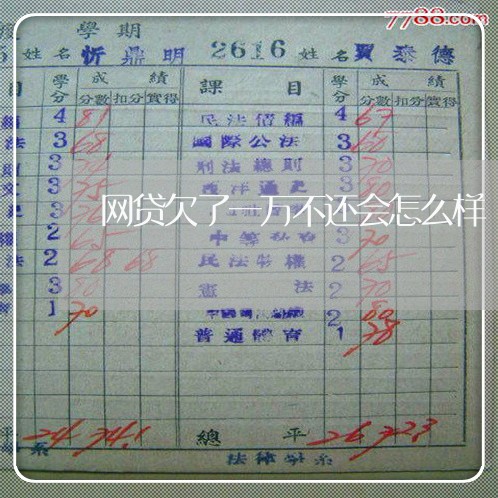 7788.com
學期
5 姓名 忻鼎明 2616 姓名 賈泰德
目 學分 成績 課目 學分 成績
分數 扣分 實得 分數 扣分 實得
4 81 民法債編 4 67
法 3 68 國際公法 3 60
3 刑法總則 3 70
3 75 西洋通史 3 80
網贷欠了一万不还会怎么样
2 65 3 70
法 2 68 68 民法物權 2 65
3 80 憲法 2 70
育 1 70 2 80
普通體育 1 78
平 24 74.1 總平 26 72.3
系 法律學系